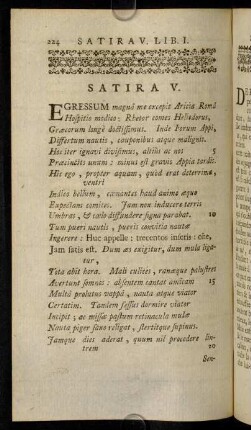 224 SATIRA V. LIB. I.
SATIRA V.
EGRESSUM magnâ me excepit Aricia Româ
Hospitio modico: Rhetor comes Heliodorus,
Græcorum longè doctissimus. Inde Forum Appî,
Differtum nautis, cauponibus atque malignis.
Hoc iter ignavi divisimus, altiùs ac nos 5
Præcinctis unum: minus est gravis Appia tardis.
Hîc ego, propter aquam, quòd erat deterrima,
ventri
Indico bellum, cœnantes haud animo æquo
Expectans comites. Jam nox inducere terris
Umbras, & cœlo diffundere signa parabat. 10
Tum pueri nautis, pueris convitia nautæ
Ingerere: Huc appelle: trecentos inseris: ohe,
Jam satis est. Dum æs exigitur, dum mula liga-
tur,
Tota abit hora. Mali culices, ranæque palustres
Avertunt somnos: absentem cantat amicam 15
Multâ prolutus vappâ, nauta atque viator
Certatim. Tandem fessus dormire viator
Incipit; ac missæ pastum retinacula mulæ
Nauta piger saxo religat, stertitque supinus.
Jamque dies aderat, quum nil procedere lin-
trem 20
Sen-